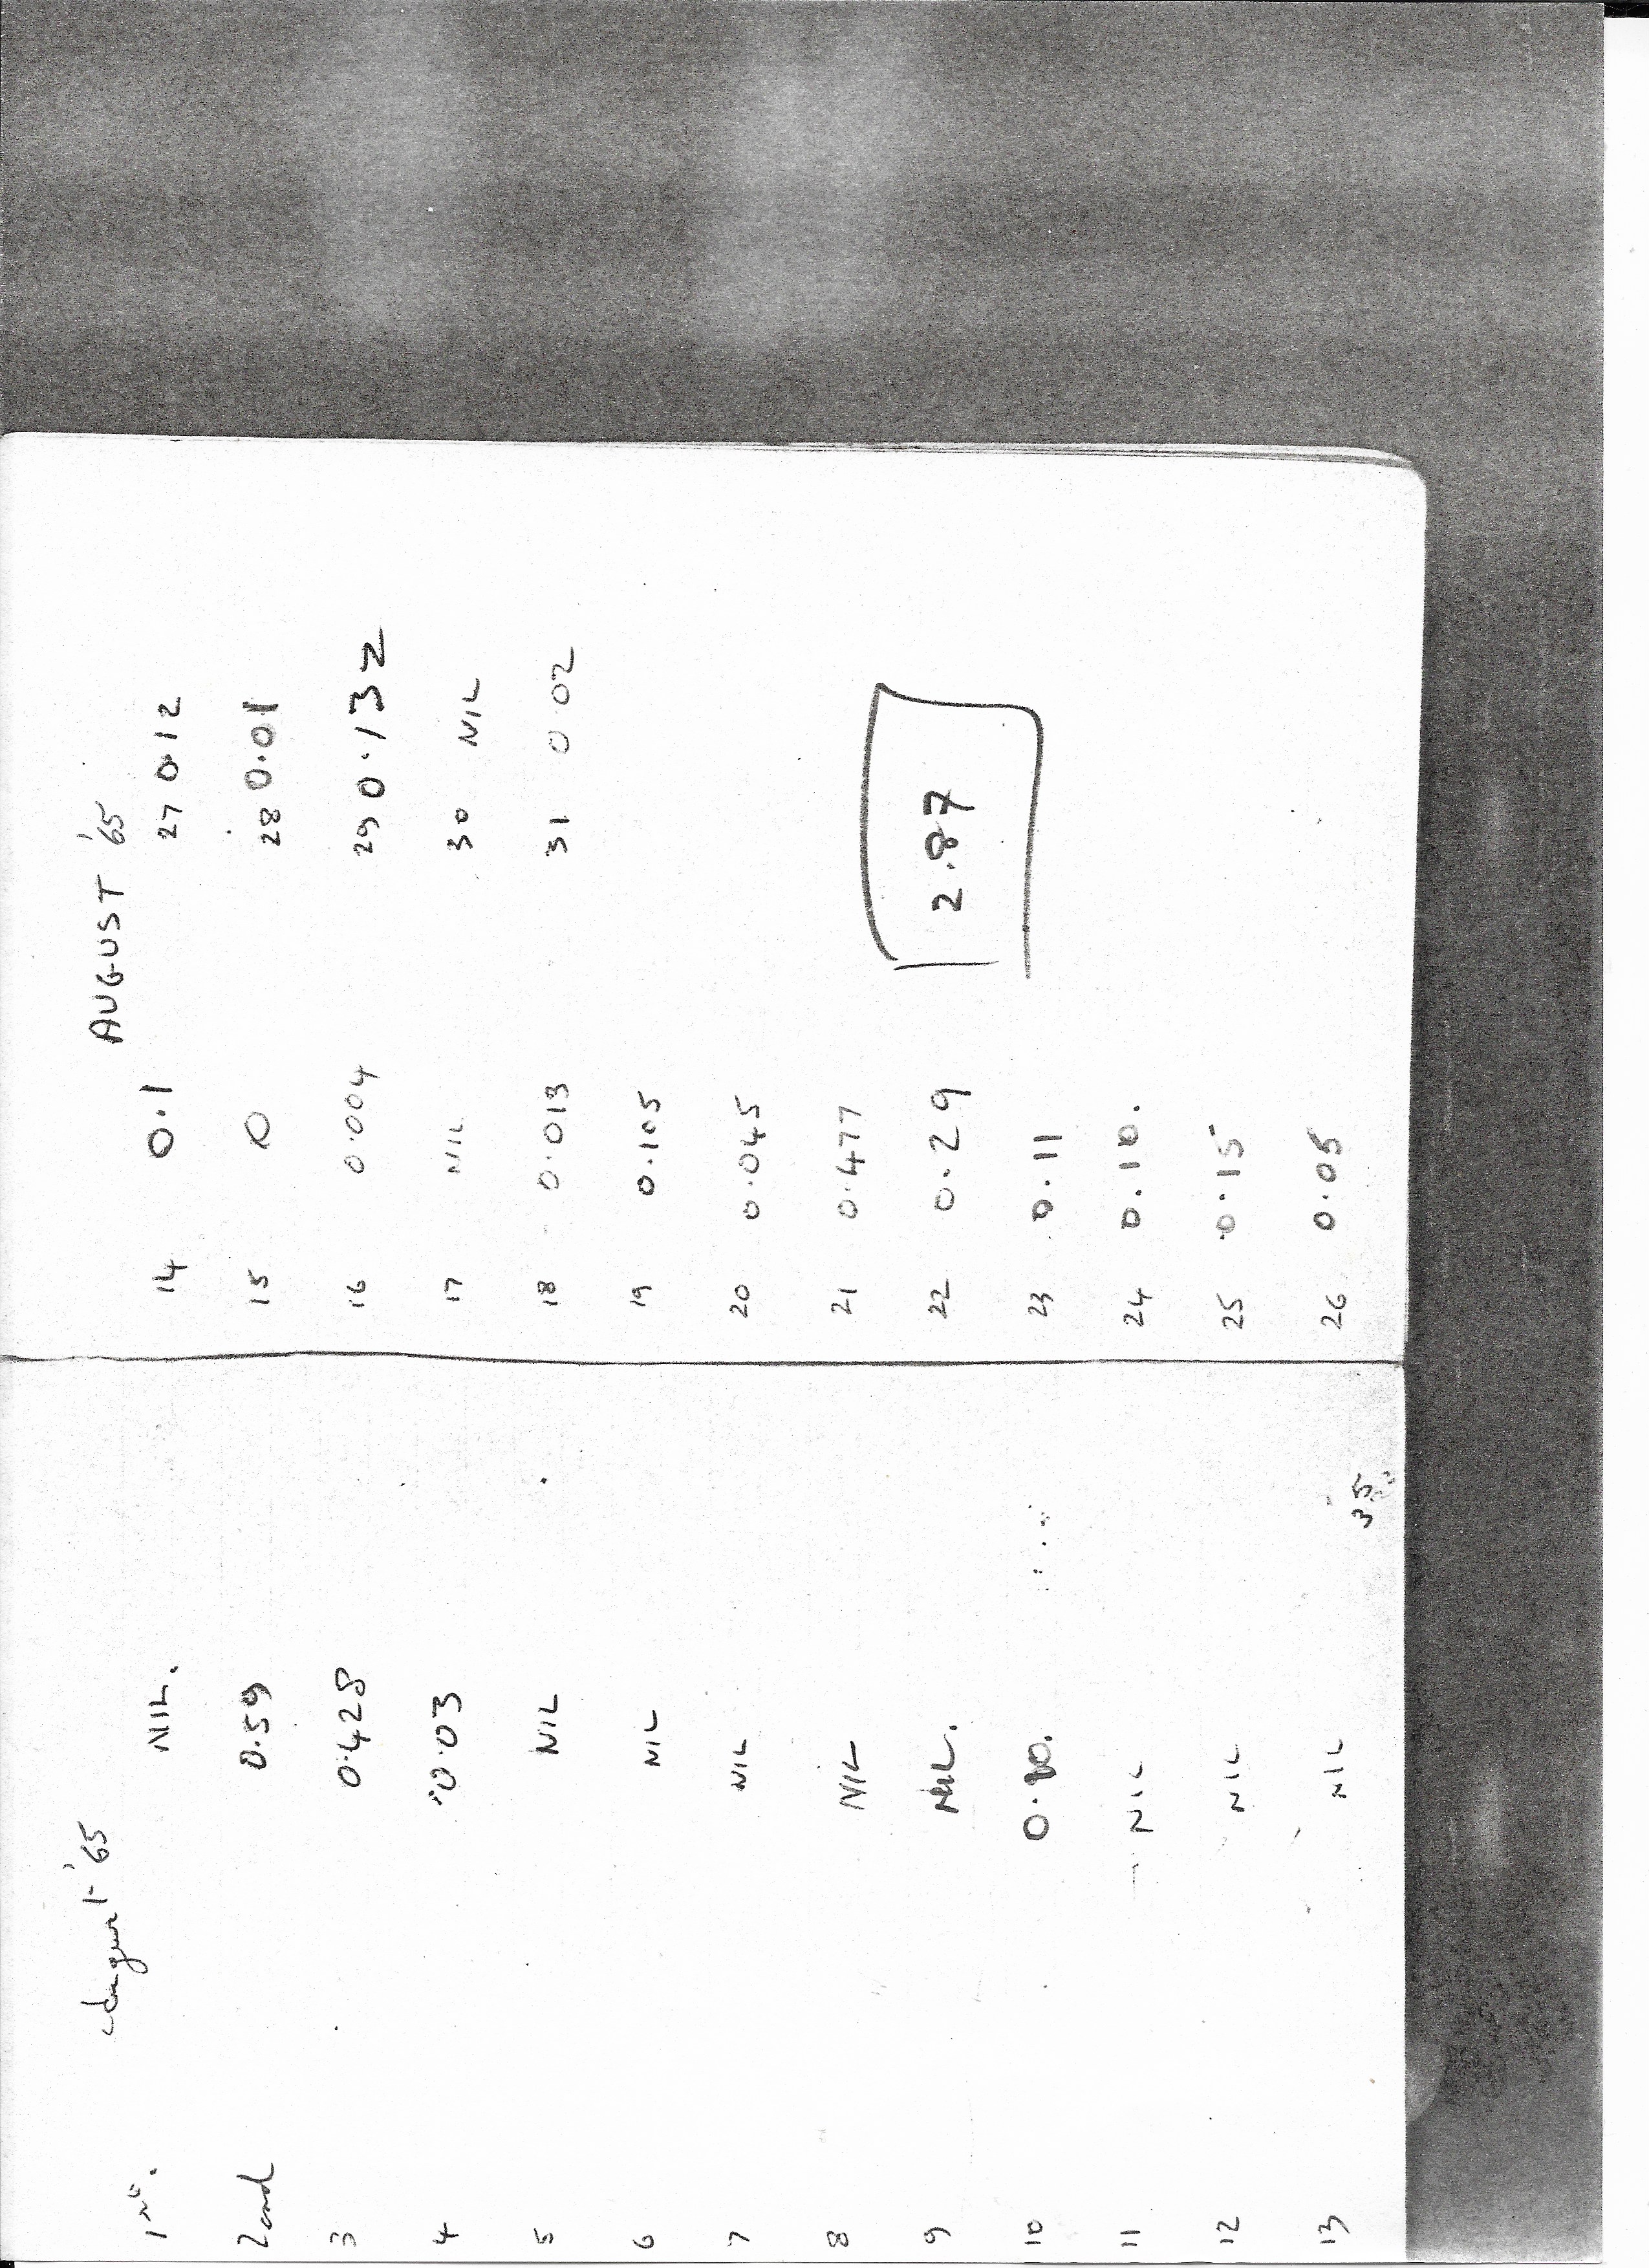 August '65
1st. NIL.
2cond 0.59
3 0.428
4 0.03
5 NIL
6 NIL
7 NIL
8 NIL
9 NIL.
10
11 NIL
12 NIL
13 NIL
35
AUGUST '65
14 0.1
15 0
16 0.004
17 NIL
18 0.013
19 0.105
20 0.045
21 0.477
22 0.29
23 0.11
24 0.10.
25 0.15
26 0.05
27 0.12
28 0.01
29 0.132
30 NIL
31 0 02
2.87